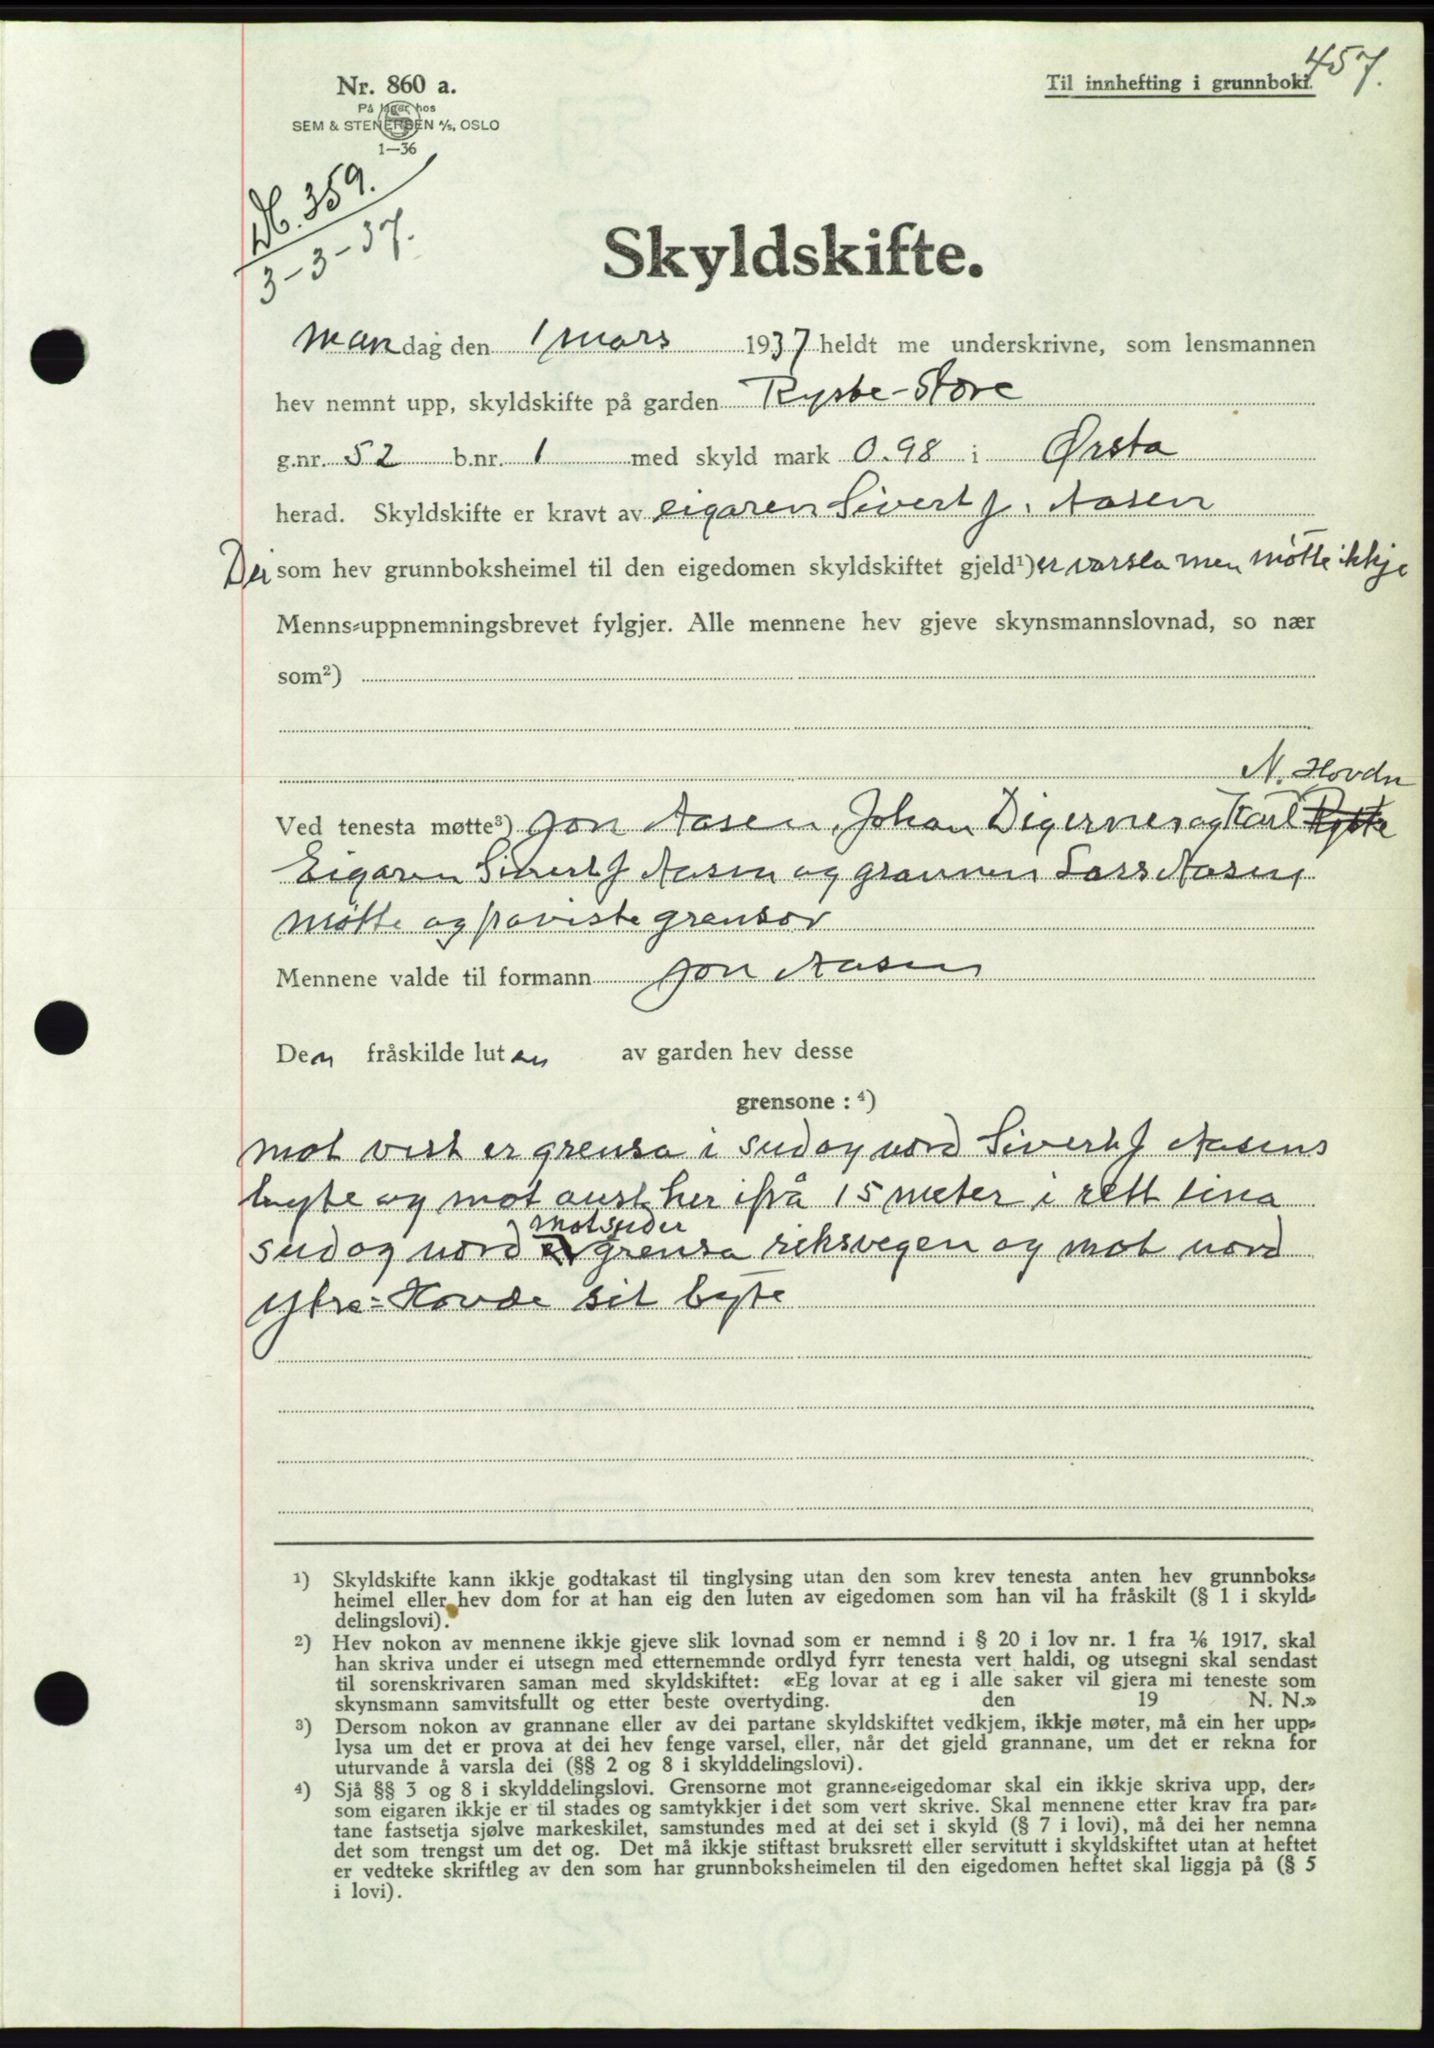 457.
Nr. 860 a.
Til innhefting i grunnboki.
På lager hos
SEM & STENERSEN A/S, OSLO
1—36
Db. 359.
3-3-37.
Skyldskifte.
Mandag den 1 mars 1937 heldt me underskrivne, som lensmannen
hev nemnt upp, skyldskifte på garden Ryste-Store
g.nr. 52 b.nr. 1 med skyld mark 0.98 i Ørsta
herad. Skyldskifte er kravt av eigaren Sivert J. Aasen
Dei som hev grunnboksheimel til den eigedomen skyldskiftet gjeld¹) er varsla men møtte ikkje
Menns-uppnemningsbrevet fylgjer. Alle mennene hev gjeve skynsmannslovnad, so nær
som²)
N. Hovdn
Ved tenesta møtte³) Jon Aasen, Johan Digernes og Karl Ryste
Eigaren Sivert J Aasen og grannen Lars Aasen
møtte og paviste grensor
Mennene valde til formann Jon Aasen
Den fråskilde luten av garden hev desse
grensone : ⁴)
mot vest er grensa i sud og nord Sivert J Aasens
byte og mot aust her ifrå 15 meter i rett lina
mot suder
sud og nord er grensa riksvegen og mot nord
Ytre-Hovde sit byte
¹) Skyldskifte kann ikkje godtakast til tinglysing utan den som krev tenesta anten hev grunnboks-
heimel eller hev dom for at han eig den luten av eigedomen som han vil ha fråskilt (§ 1 i skyld-
delingslovi).
²) Hev nokon av mennene ikkje gjeve slik lovnad som er nemnd i § 20 i lov nr. 1 fra 1/6 1917, skal
han skriva under ei utsegn med etternemnde ordlyd fyrr tenesta vert haldi, og utsegni skal sendast
til sorenskrivaren saman med skyldskiftet: «Eg lovar at eg i alle saker vil gjera mi teneste som
skynsmann samvitsfullt og etter beste overtyding. den 19 N. N.»
³) Dersom nokon av grannane eller av dei partane skyldskiftet vedkjem, ikkje møter, må ein her upp-
lysa um det er prova at dei hev fenge varsel, eller, når det gjeld grannane, um det er rekna for
uturvande å varsla dei (§§ 2 og 8 i skylddelingslovi).
⁴) Sjå §§ 3 og 8 i skylddelingslovi. Grensorne mot granne-eigedomar skal ein ikkje skriva upp, der-
som eigaren ikkje er til stades og samtykkjer i det som vert skrive. Skal mennene etter krav fra par-
tane fastsetja sjølve markeskilet, samstundes med at dei set i skyld (§ 7 i lovi), må dei her nemna
det som trengst um det og. Det må ikkje stiftast bruksrett eller servitutt i skyldskiftet utan at heftet
er vedteke skriftleg av den som har grunnboksheimelen til den eigedomen heftet skal liggja på (§ 5
i lovi).